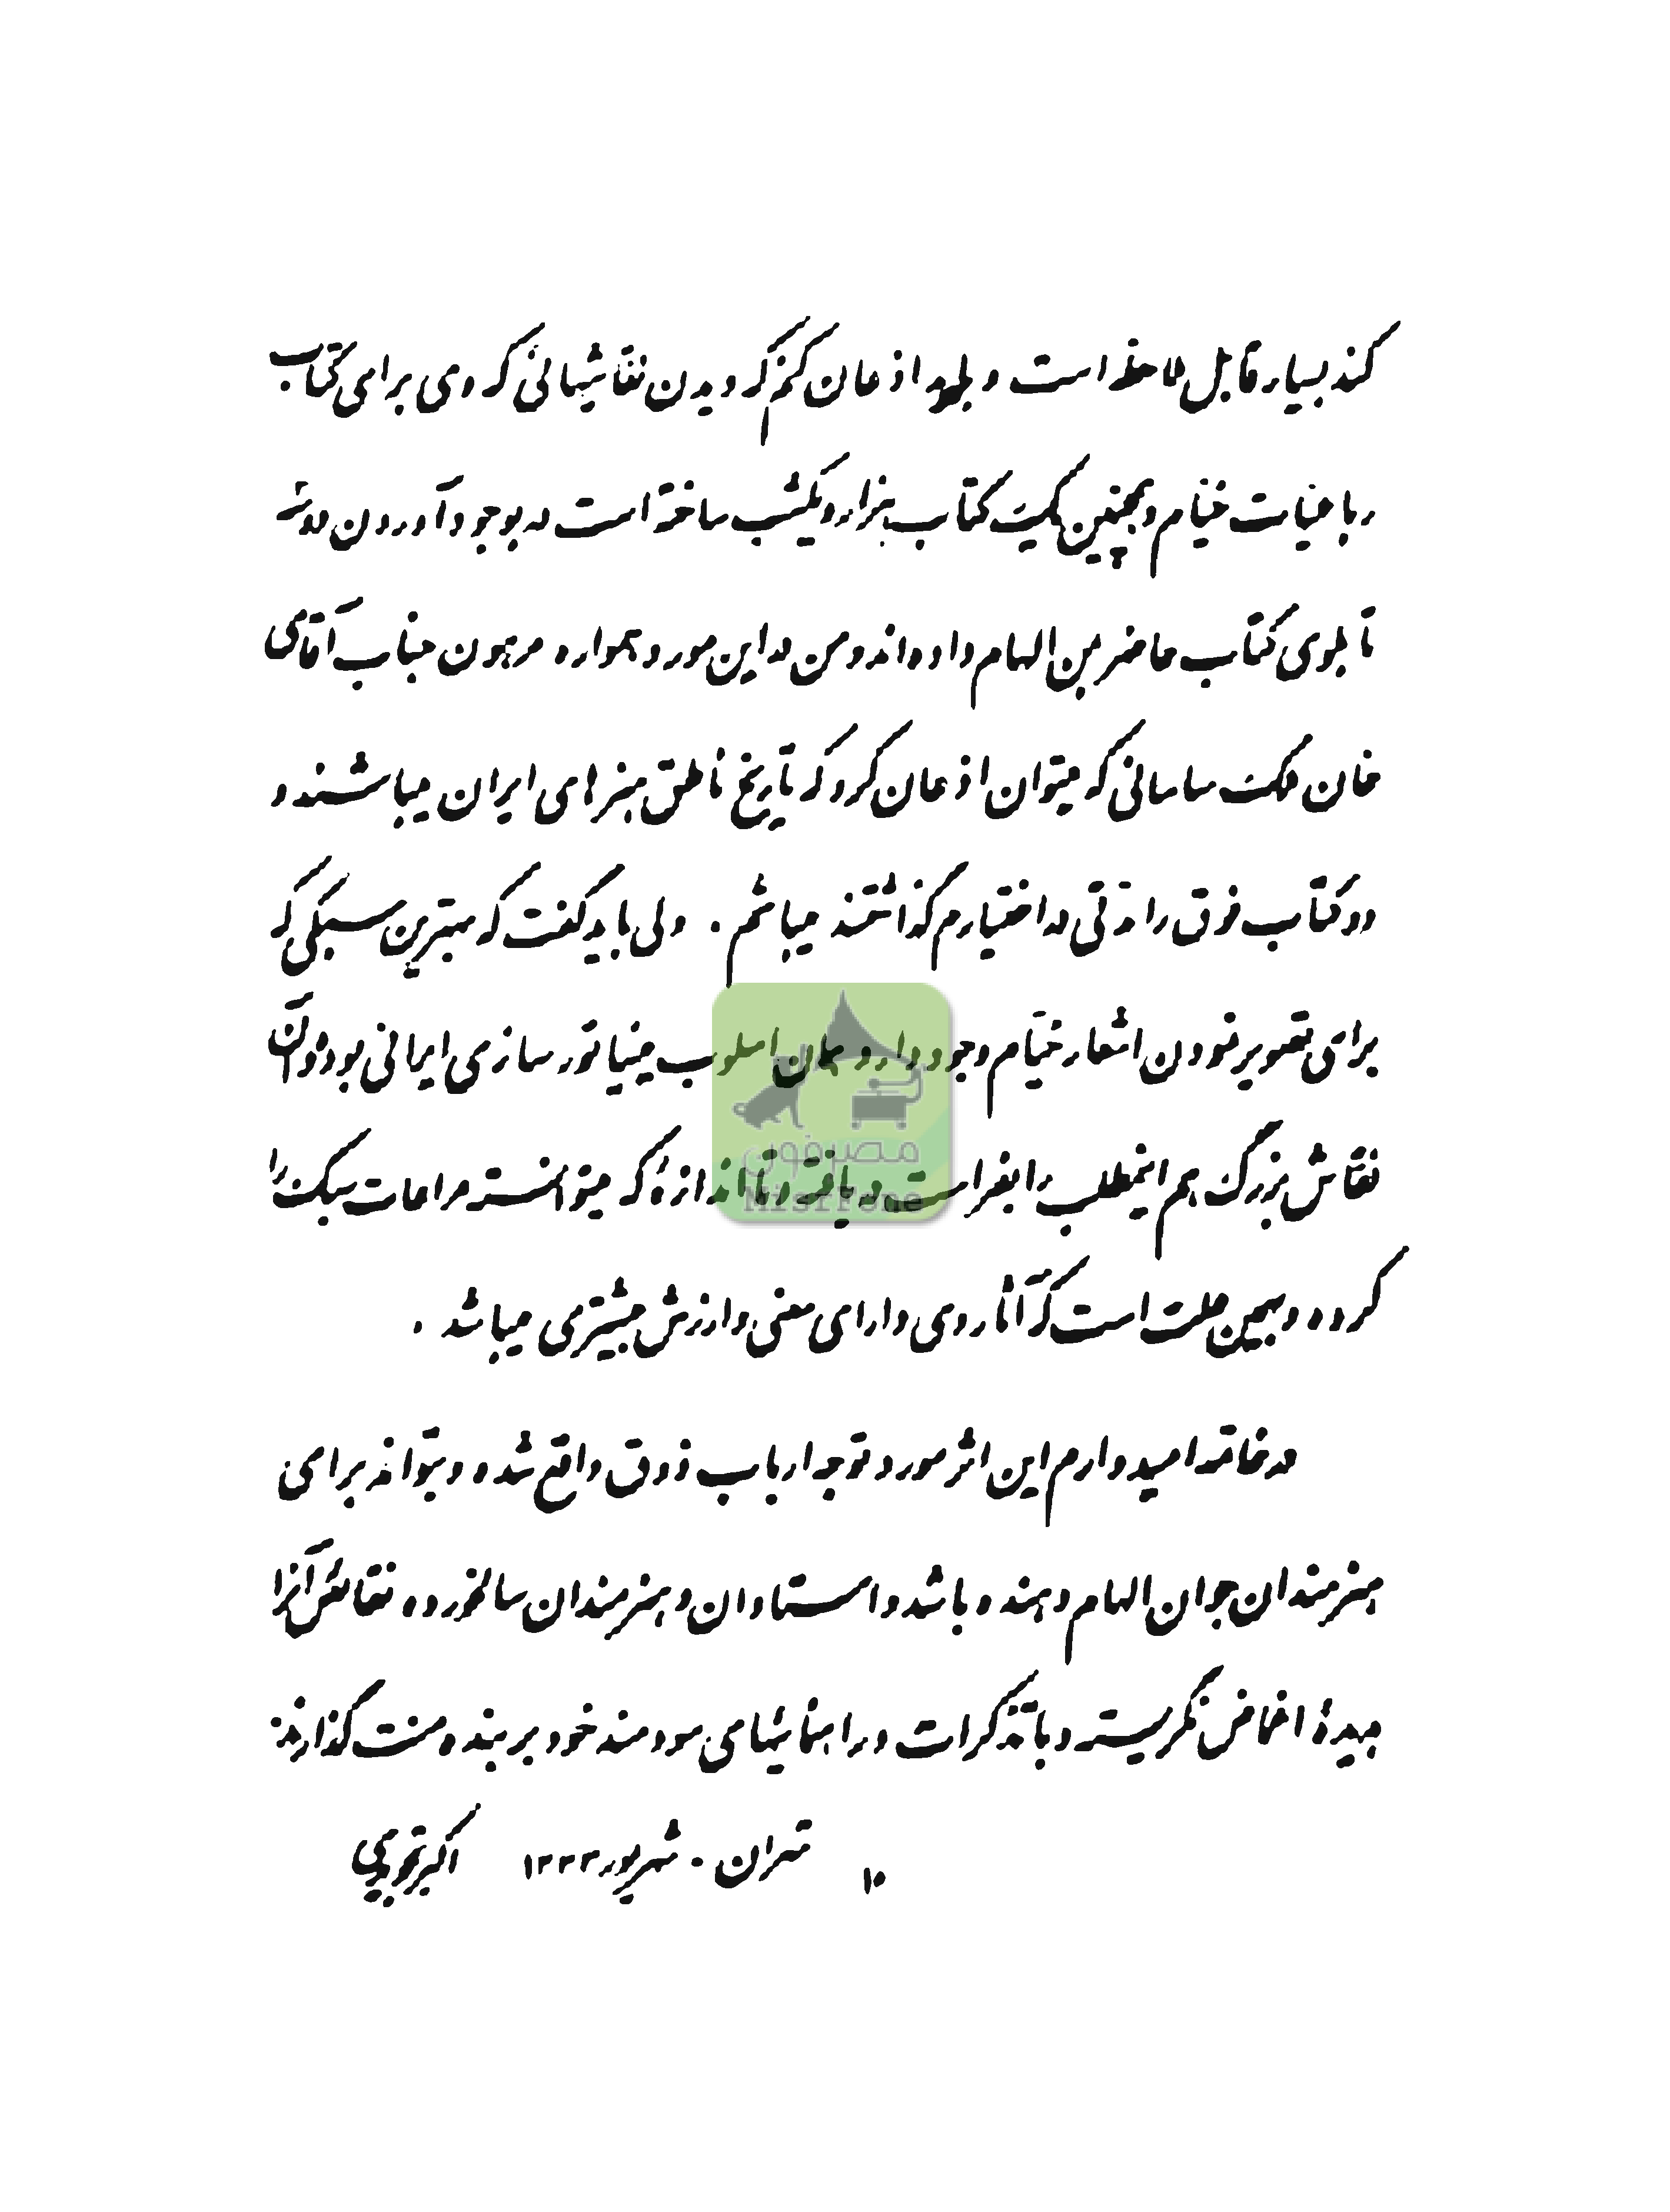 کند بسیار قابل ملاحظه است و باید اذعان کنم که دیدن نقاشیهائی که وی برای کتاب
رباعیات خیام و همچنین کتاب هزار و یکشب ساخته است در بوجود آوردن
تابلوی کتاب حاضر بمن الهام داده‌اند و من در این مورد همواره مرهون جناب آقای
خان ملک ساسانی که میتوان اذعان کرد که تاریخ ناطق هنرهای ایران میباشند و
دو کتاب فوق را مدتی در اختیارم گذاشتند میباشم . ولی باید گفت که بهترین سبکی که
برای تصویر نمودن اشعار خیام وجود دارد همان اسلوب مینیاتور سازی ایرانی بوده و آن
نقاش بزرگ هم اینمطلب را بفراست دریافته و تا اندازهٔ که میتوانسته مراعات سبک را
کرده و بهمین علت است که آثار وی دارای معنی و ارزش بیشتری میباشد .
در خاتمه امیدوارم این اثر مورد توجه ارباب ذوق واقع شده و بتواند برای
هنرمندان جوان الهام دهنده باشد و استادان و هنرمندان سالخورده نقائص آنرا
بدیدهٔ اغماض نگریسته و با تذکرات و راهنمائیهای سودمند خود بر بنده منت گذارند
تهران - شهریور ۱۳۳۳ اکبر تجویدی
۱۰
مصرفون
MisrFone